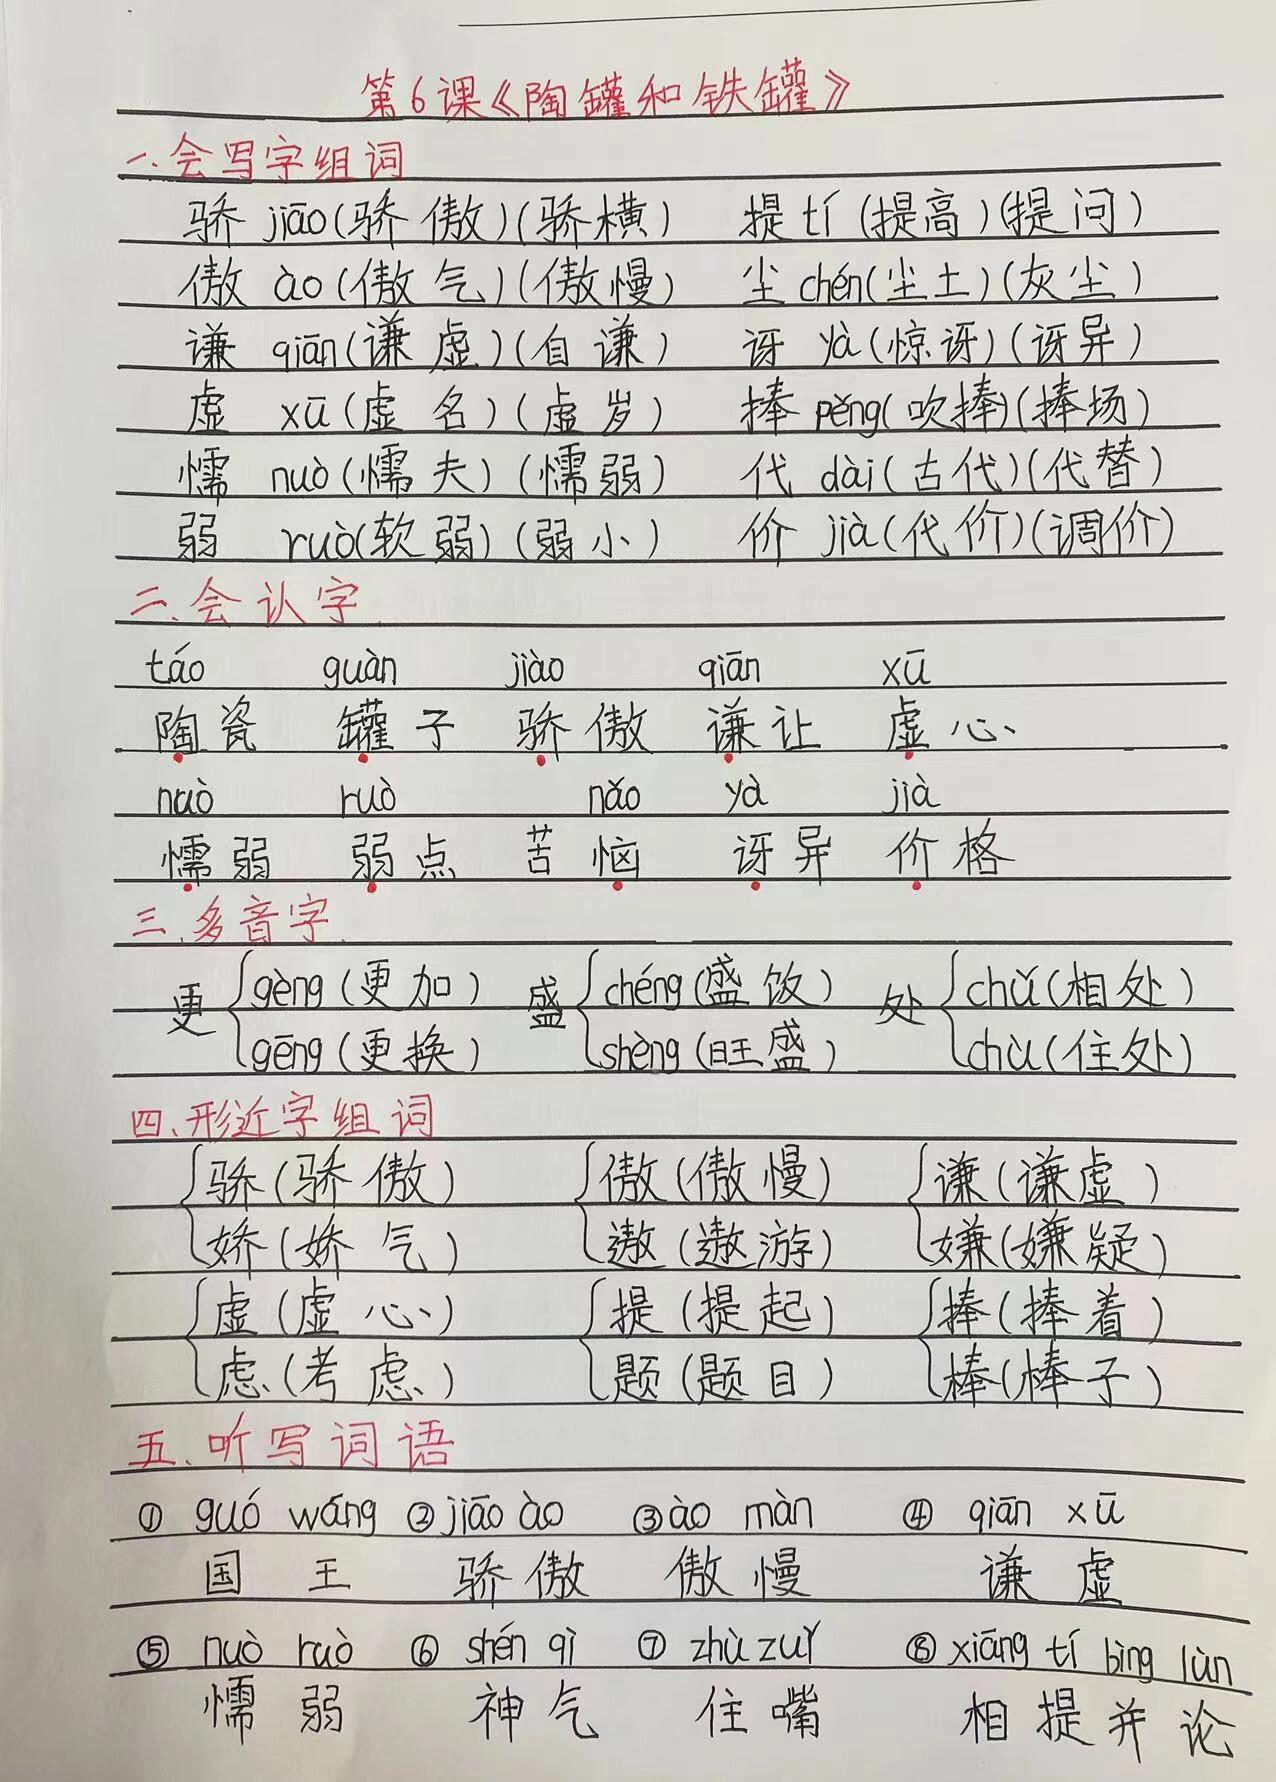 第6课《陶罐和铁罐》
一.会写字组词
骄 jiāo(骄傲)(骄横) 提 tí (提高)(提问)
傲 ào(傲气)(傲慢) 尘 chén(尘土)(灰尘)
谦 qiān(谦虚)(自谦) 讶 yà(惊讶)(讶异)
虚 xū(虚名)(虚岁) 捧 pěng(吹捧)(捧场)
懦 nuò(懦夫)(懦弱) 代 dài(古代)(代替)
弱 ruò(软弱)(弱小) 价 jià(代价)(调价)
二.会认字
táo guàn jiào qiān xū
陶瓷 罐子 骄傲 谦让 虚心
nuò ruò nǎo yà jià
懦弱 弱点 苦恼 讶异 价格
三.多音字
更 gèng(更加) gēng(更换) 盛 chéng(盛饭) shèng(旺盛) 处 chǔ(相处) chù(住处)
四.形近字组词
骄(骄傲) 傲(傲慢) 谦(谦虚)
娇(娇气) 遨(遨游) 嫌(嫌疑)
虚(虚心) 提(提起) 捧(捧着)
虑(考虑) 题(题目) 棒(棒子)
五.听写词语
① guó wáng ② jiāo ào ③ ào màn ④ qiān xū
国王 骄傲 傲慢 谦虚
⑤ nuò ruò ⑥ shén qì ⑦ zhù zuǐ ⑧ xiāng tí bìng lùn
懦弱 神气 住嘴 相提并论